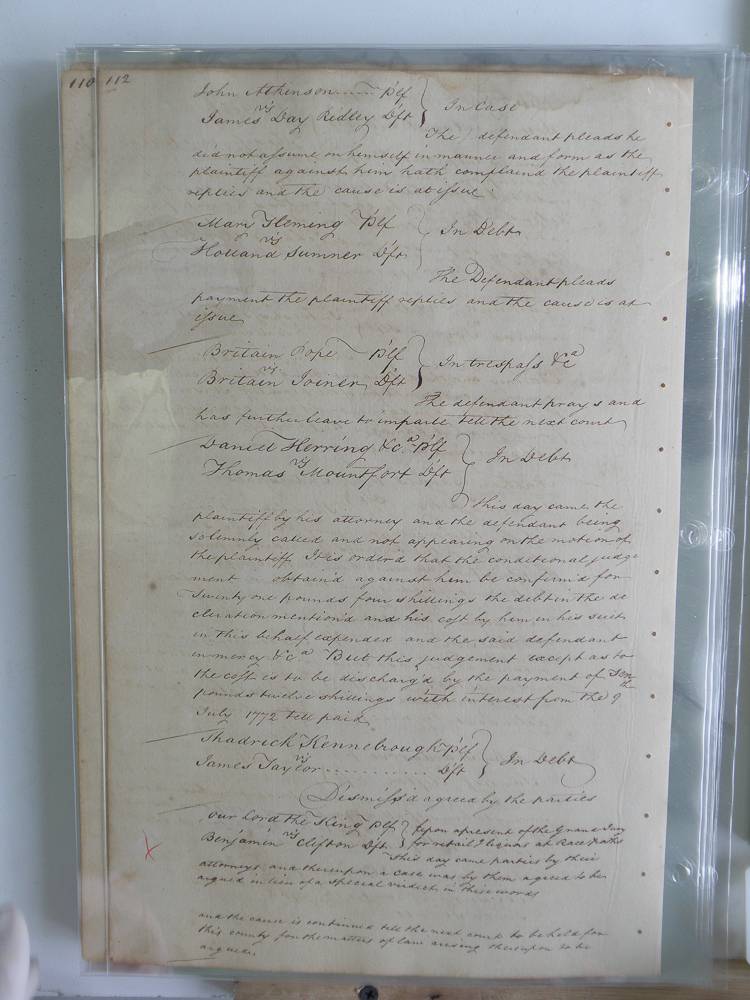 110 112
John Atkinson Plf
vs
James Day Ridley Dft
In Case
The defendant pleads he
did not assume on himself in manner and form as the
plaintiff against him hath complaind the plaintiff
replies and the cause is at issue
Mary Fleming Plf
vs
Holland Sumner Dft
In Debt
The Defendant pleads
payment the plaintiff replies and the cause is at
issue
Britain Pope Plf
vs
Britain Joiner Dft
In trespass &ca
The defendant prays and
has further leave to imparle till the next court
Daniel Herring &ca Plf
vs
Thomas Mountfort Dft
In Debt
This day came the
plaintiff by his attorney and the defendant being
solemnly called and not appearing on the motion of
the plaintiff It is orderd that the conditional judge
ment obtaind against him be confirmd for
twenty one pounds four shillings the debt in the de
claration mention'd and his cost by him in his suit
in this behalf expended and the said defendant
in mercy &ca But this judgement except as to
the cost is to be discharg'd by the payment of Ten
pounds twelve shillings with interest from the 9th
July 1772 till paid
Shadrich Kennebrough Plf
vs
James Taylor .......... Dft
In Debt
Dismiss'd agreed by the parties
Our Lord the King Plf
vs
Benjamin Clifton Dft
upon a present of the Grand Jury
for retail g liquor at Race paths
This day came parties by their
attorneys and thereupon a case was by them agreed to be
argued in lieu of a special verdict in these words
and the cause is continued till the next court to be held for
this county for the matters of law arising thereupon to be
argued.